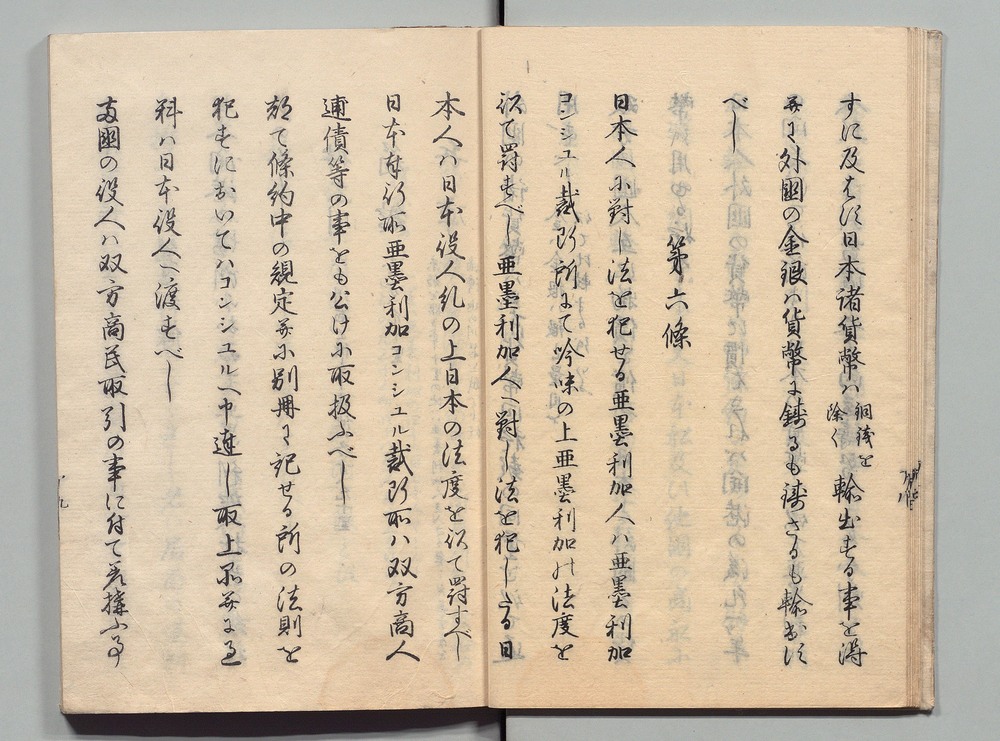 すに及はす日本諸貨幣ハ銅錢を除く輸出する事を得
並に外國の金銀ハ貨幣に鋳るも鋳さるも輸出す
べし
第六條
日本人に對し法を犯せる亜墨利加人ハ亜墨利加
コンシユル裁断所にて吟味の上亜墨利加の法度を
以て罰すべし亜墨利加人へ對し法を犯したる日
本人ハ日本役人糺の上日本の法度を以て罰すべし
日本奉行所亜墨利加コンシユル裁断所ハ双方商人
逋債等の事をも公けに取扱ふべし
都て條約中の規定並に別冊に記せる所の法則を
犯すにおいてハコンシユルへ申達し取上品並に過
料ハ日本役人へ渡すべし
両國の役人ハ双方商民取引の事に付て差搆ふ事